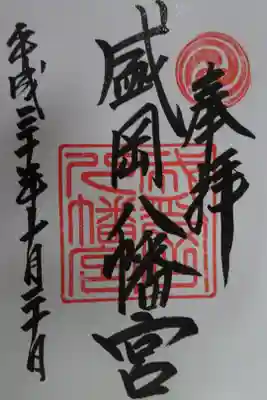 奉拝
盛岡八幡宮
平成三十年十月二十日
盛岡
八幡宮